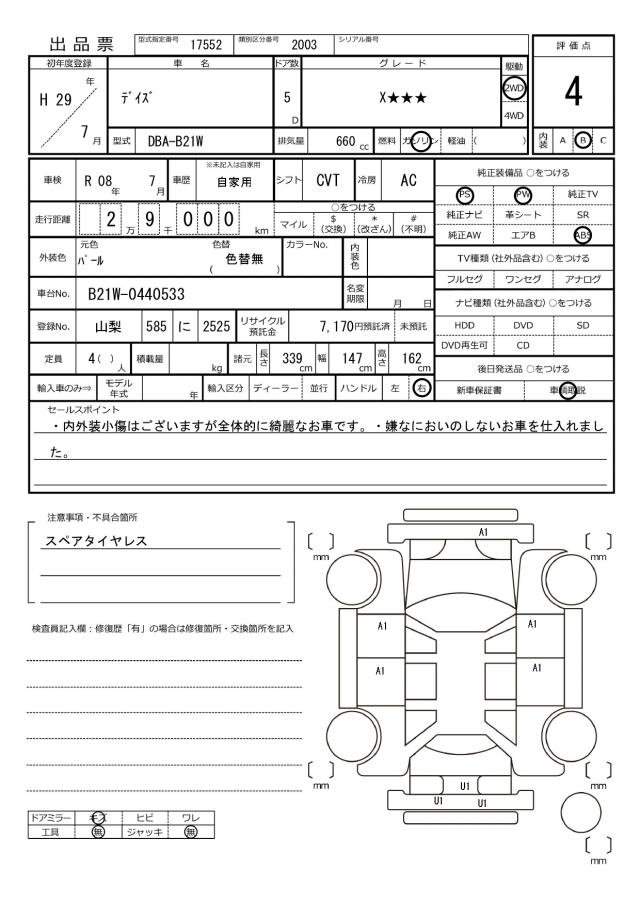 出品票 型式指定番号 17552 類別区分番号 2003 シリアル番号 評価点
初年度登録 車名 ドア数 グレード 駆動
H 29 年 7 月 ﾃﾞｲｽﾞ 5 D X★★★ 2WD 4WD 4
型式 DBA-B21W 排気量 660 cc 燃料 ガソリン 軽油 ( ) 内装 A B C
車検 R 08 年 7 月 車歴 ※未記入は自家用 自家用 シフト CVT 冷房 AC
走行距離 2 万 9 千 0 0 0 km ○をつける マイル $ (交換) * (改ざん) # (不明)
外装色 元色 ﾊﾟｰﾙ 色替 ( 色替無 ) カラーNo. 内装色
車台No. B21W-0440533 名変期限 月 日
登録No. 山梨 585 に 2525 リサイクル預託金 7,170円預託済 未預託
定員 4( ) 人 積載量 kg 諸元 長さ 339 cm 幅 147 cm 高さ 162 cm
輸入車のみ⇒ モデル年式 年 輸入区分 ディーラー 並行 ハンドル 左 右
純正装備品 ○をつける
PS PW 純正TV
純正ナビ 革シート SR
純正AW エアB ABS
TV種類(社外品含む)○をつける
フルセグ ワンセグ アナログ
ナビ種類(社外品含む)○をつける
HDD DVD SD
DVD再生可 CD
後日発送品 ○をつける
新車保証書 車輌取説
セールスポイント
・内外装小傷はございますが全体的に綺麗なお車です。・嫌なにおいのしないお車を仕入れまし
た。
注意事項・不具合箇所
スペアタイヤレス
検査員記入欄：修復歴「有」の場合は修復箇所・交換箇所を記入
ドアミラー キズ ヒビ ワレ
工具 無 ジャッキ 無
A1
mm mm
A1 A1
A1 A1
mm U1 mm
U1 U1
mm